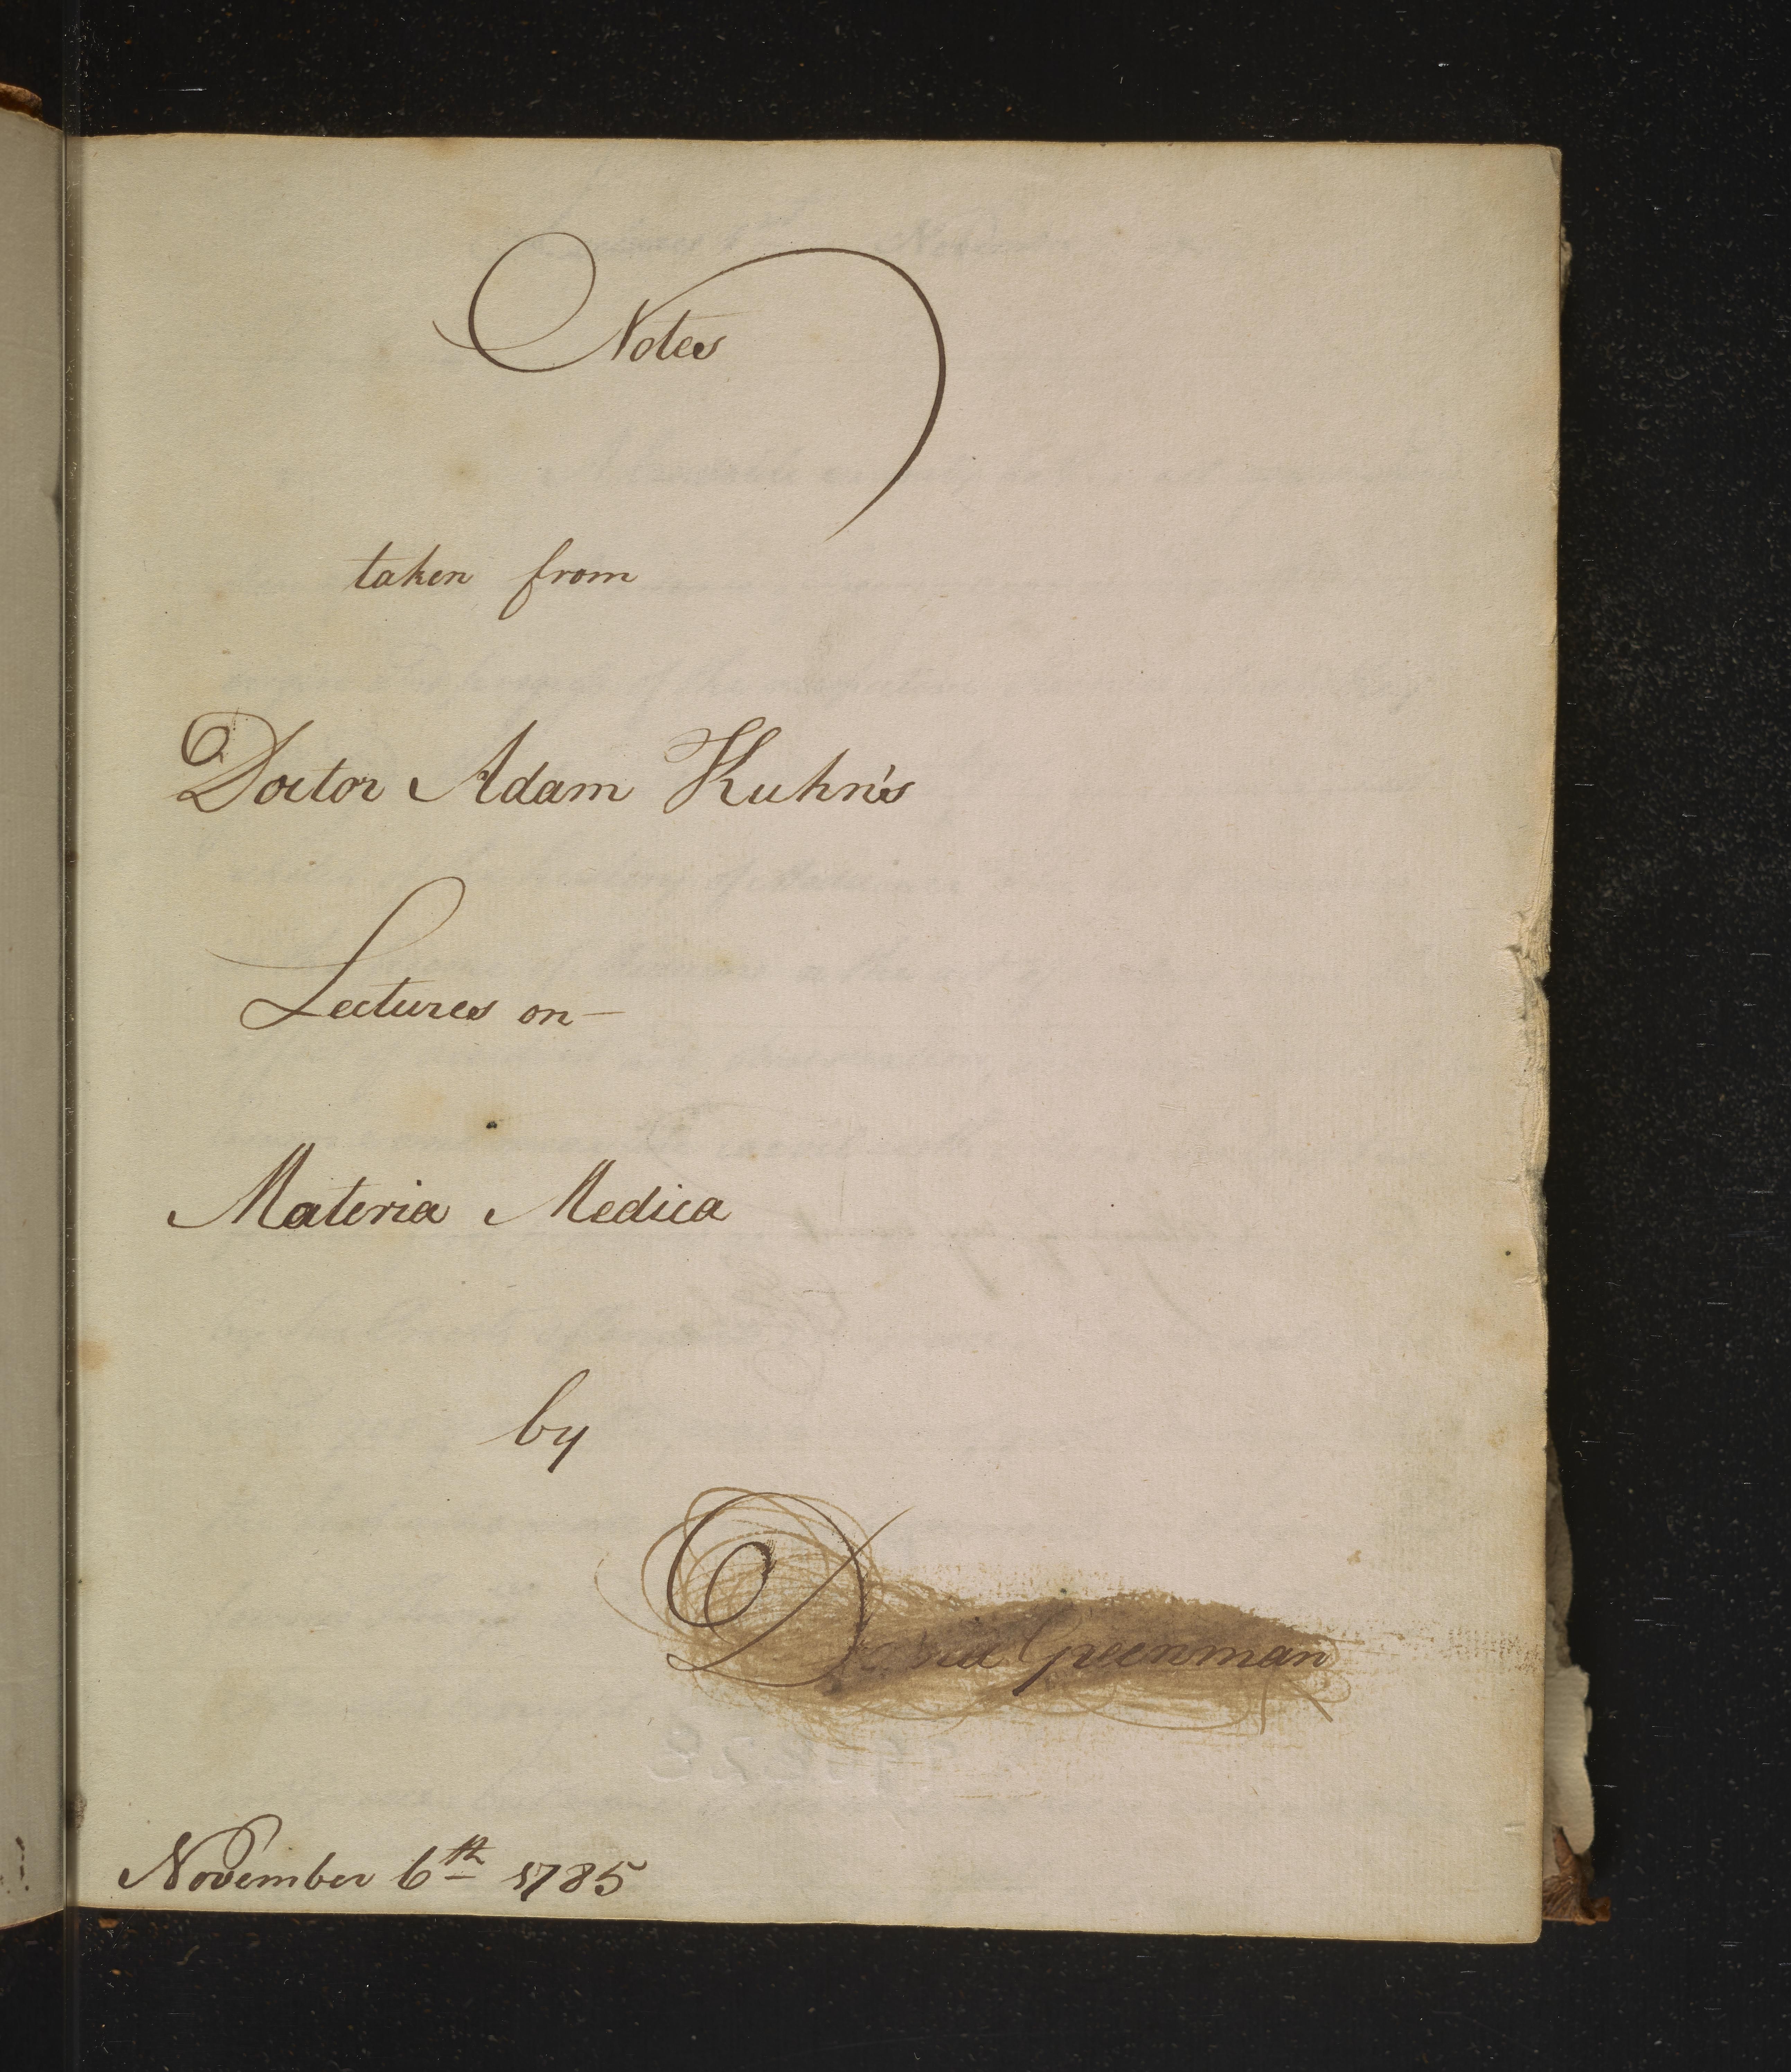 Notes
taken from
Doctor Adam Kuhn's
Lectures on—
Materia Medica
by
David Greenman
November 6th 1785